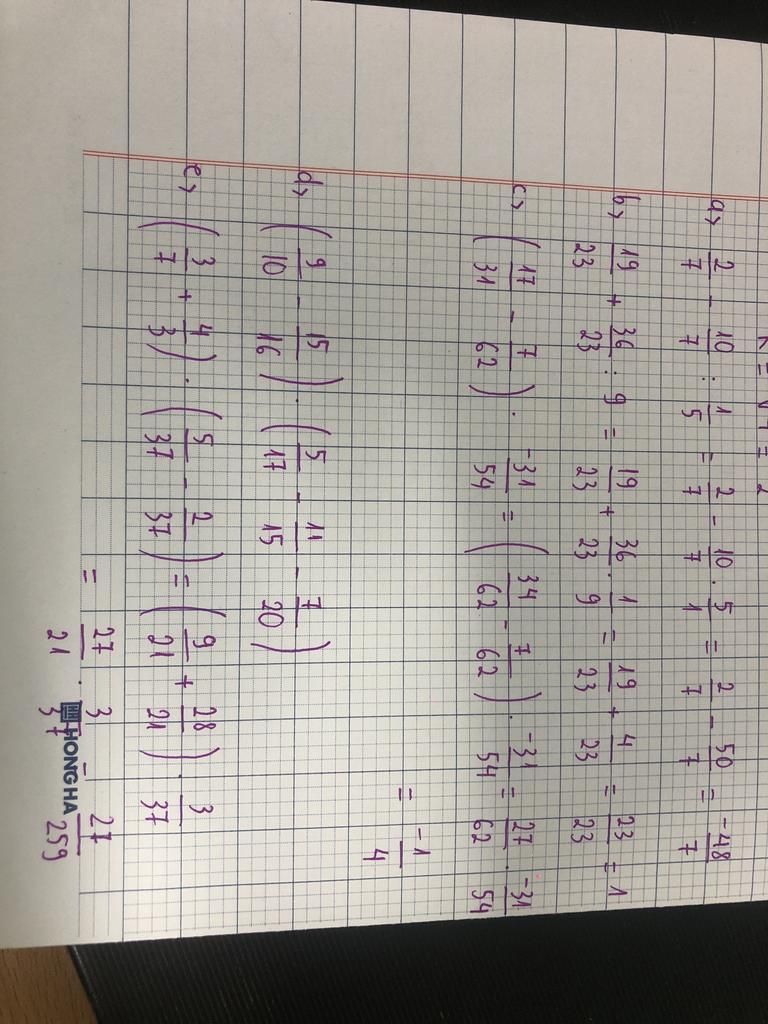 a> 2/7 - 10/7 : 1/5 = 2/7 - 10/7 . 5/1 = 2/7 - 50/7 = -48/7
b> 19/23 + 36/23 : 9 = 19/23 + 36/23 . 1/9 = 19/23 + 4/23 = 23/23 = 1
c> (17/31 - 7/62) . -31/54 = (34/62 - 7/62) . -31/54 = 27/62 . -31/54
= -1/4
d> (9/10 - 15/16) . (5/17 - 11/15 - 7/20)
e> (3/7 + 4/3) . (5/37 - 2/37) = (9/21 + 28/21) . 3/37
= 27/21 . 3/37 = 27/259
HONG HA